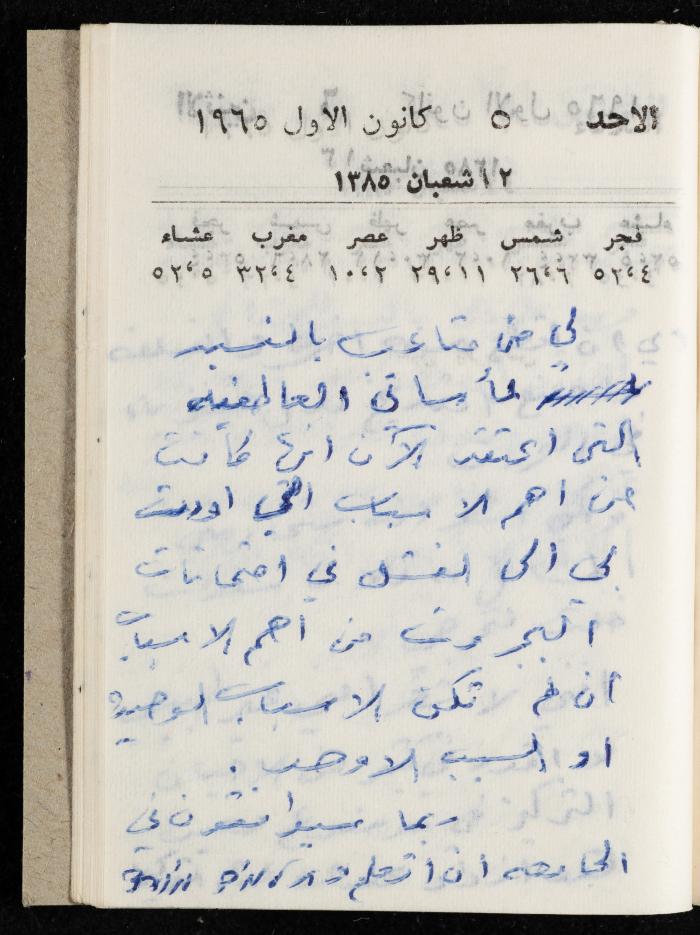 الاحد ٥ كانون الاول ١٩٦٥
١٢ شعبان ١٣٨٥
فجر شمس ظهر عصر مغرب عشاء
٥٢،٤ ٢٦،٦ ٢٩،١١ ١٠،٢ ٣٢،٤ ٥٢،٥
لي من متاعب بالنسبة
لمأساتي العاطفية
التي اعتقد الآن انها كانت
من اهم الاسباب التي اودت
بي الى الفشل في امتحانات
من اهم الاسباب
ان لم تكن الاسباب الوحيدة
او السبب الاوحد .
ربما سيوافقون في
الجامعة ان اتعلم